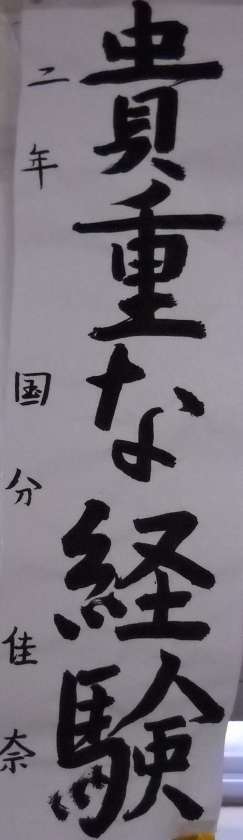 貴重な経験
二年 国分佳奈